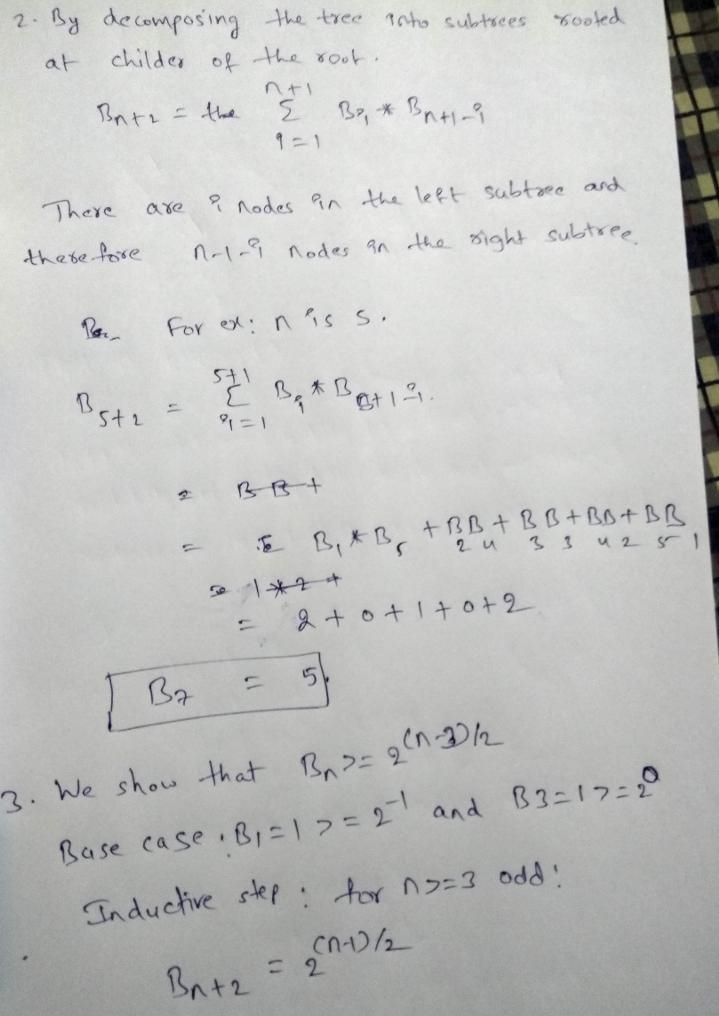 2. By decomposing the tree into subtrees rooted
at childer of the root.
n+1
Bn+2 = the Σ Bi * Bn+1-i
i=1
There are i nodes in the left subtree and
therefore n-1-i nodes in the right subtree.
For ex: n is 5.
5+1
B5+2 = Σ Bi * B5+1-i
i=1
= B B +
= B1 * B5 + BB + BB + BB + BB
2 4 3 3 4 2 5 1
= 1 * 2 +
= 2 + 0 + 1 + 0 + 2
B7 = 5.
3. We show that Bn >= 2(n-3)/2
Base case : B1 = 1 >= 2-1 and B3 = 1 >= 20
Inductive step : for n >= 3 odd:
Bn+2 = 2(n-1)/2